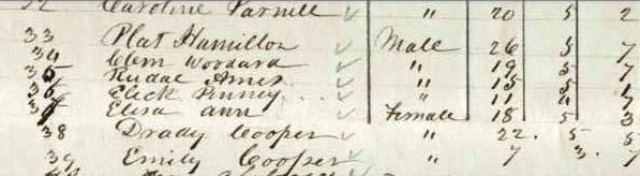 32 Caroline Parnell " 20 5 2
33 Plat Hamilton Male 26 5 7
34 Clem Woodard " 19 5 7
35 Ames " 15 5
36 Elick Pinney " 11 4
37 Elisa Ann Female 18 5 3
38 Drady Cooper " 22. 5 5
39 Emily Cooper " 7 3. 7